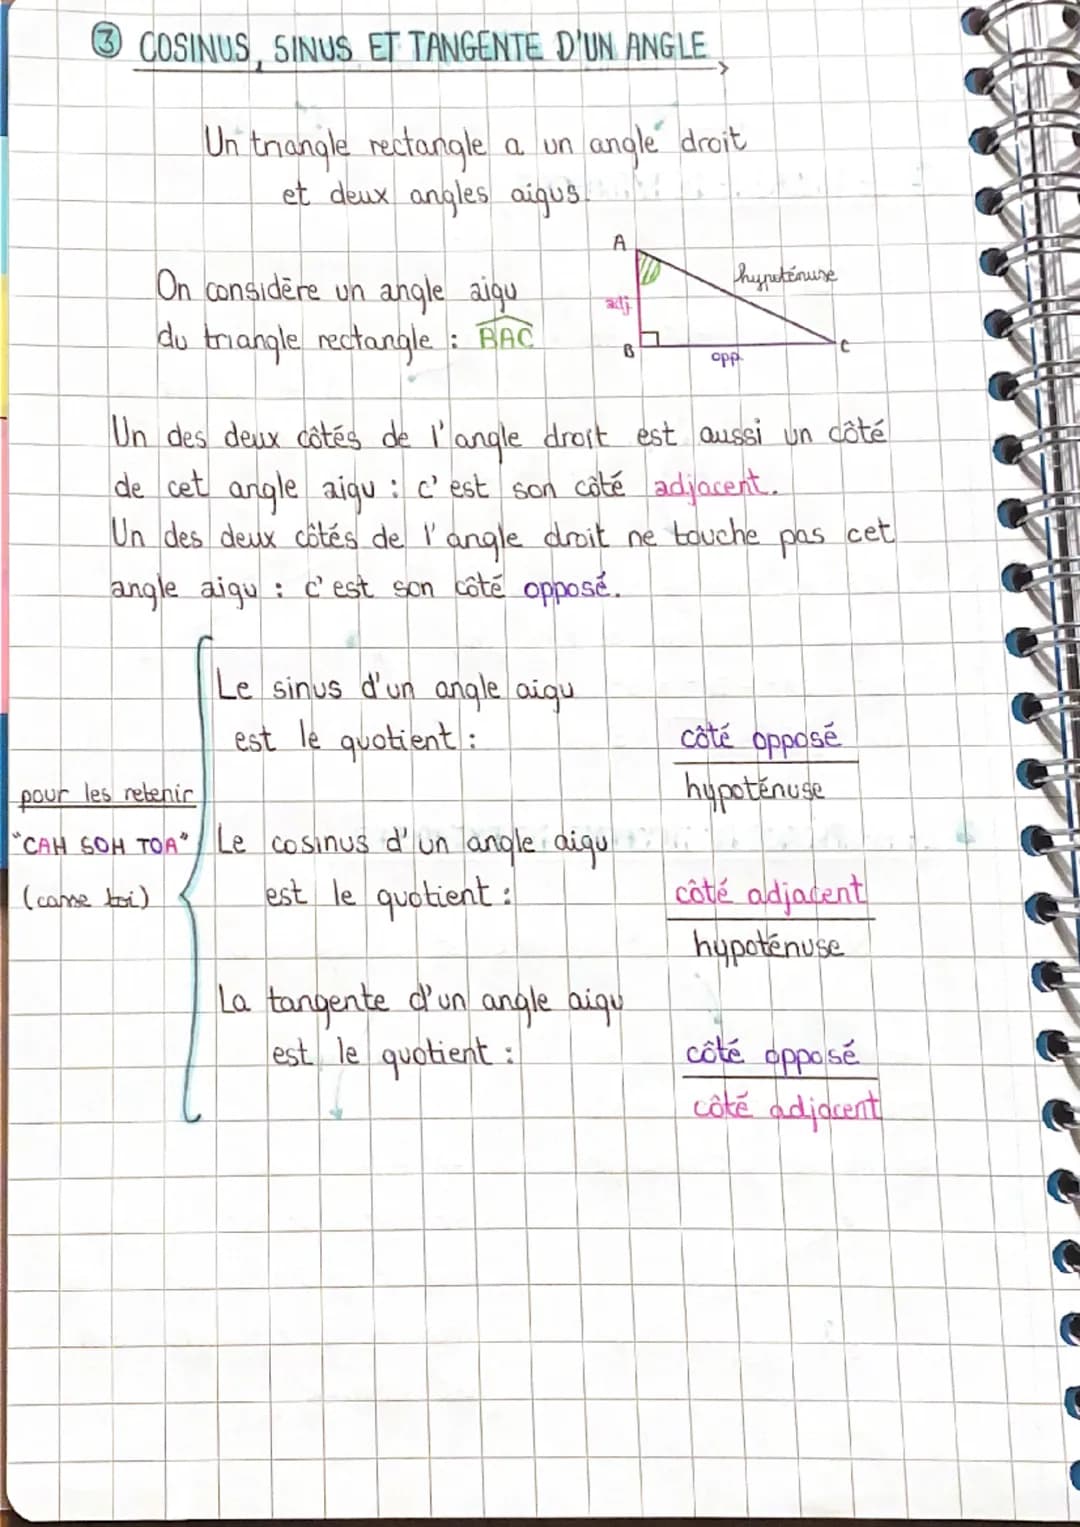 ③ COSINUS, SINUS ET TANGENTE D'UN ANGLE
Un triangle rectangle a un angle droit
et deux angles aigus.
On considère un angle aigu
du triangle rectangle : BAC
A
hypoténuse
adj.
B
opp.
C
Un des deux côtés de l'angle droit est aussi un côté
de cet angle aigu : c'est son côté adjacent.
Un des deux côtés de l'angle droit ne touche pas cet
angle aigu : c'est son côté opposé.
Le sinus d'un angle aigu
est le quotient :
côté opposé
hypoténuse
pour les retenir
"CAH SOH TOA"
(casse toi)
Le cosinus d'un angle aigu
est le quotient :
côté adjacent
hypoténuse
La tangente d'un angle aigu
est le quotient :
côté opposé
côté adjacent